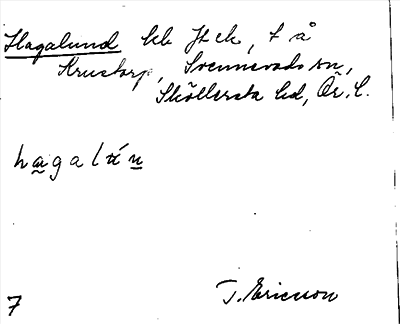 Hagalund
Krustorp, Svennevads sn,
Sköllersta hd, Ör. l.
hagalun
T. Ericsson
7